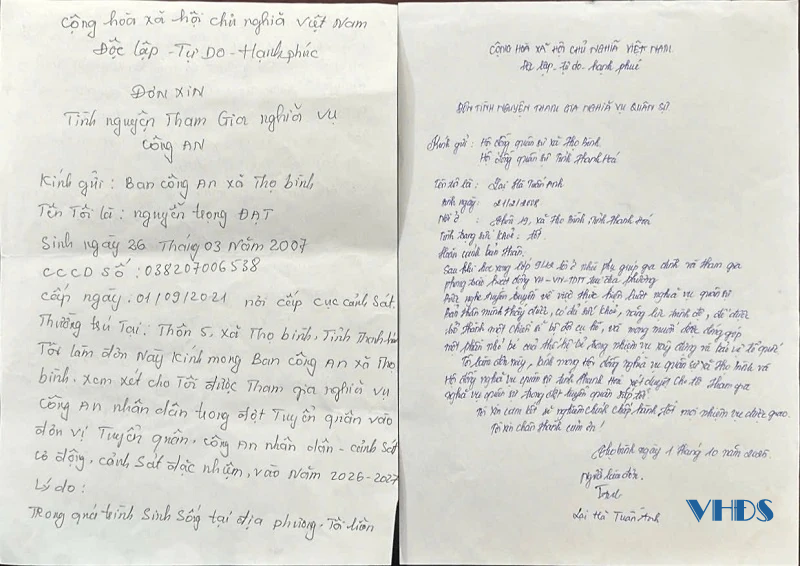 Cộng hòa xã hội chủ nghĩa Việt Nam
Độc lập - Tự Do - Hạnh phúc
ĐƠN XIN
Tình nguyện Tham Gia nghĩa vụ
CÔNG AN
Kính gửi : Ban công An xã Thọ bình
Tên Tôi là : nguyễn trọng ĐẠT
Sinh ngày 26 Tháng 03 Năm 2007
CCCD Số : 038207006538
cấp ngày : 01/09/2021 nơi cấp cục cảnh Sát
Thường trú Tại : Thôn 5, xã Thọ bình, Tỉnh Thanh hóa
Tôi làm đơn Này Kính mong Ban công An xã Thọ
bình, xem xét cho Tôi được Tham gia nghĩa vụ
Công An nhân dân trong đợt Tuyển quân vào
đơn vị Tuyển quân, công An nhân dân - cảnh Sát
cơ động, cảnh Sát đặc nhiệm, vào Năm 2026-2027
Lý do :
Trong quá trình Sinh Sống tại địa phương, Tôi luôn
CỘNG HOÀ XÃ HỘI CHỦ NGHĨA VIỆT NAM
Độc lập - tự do - hạnh phúc
ĐƠN TÌNH NGUYỆN THAM GIA NGHĨA VỤ QUÂN SỰ
Kính gửi : Hội đồng quân sự xã Thọ Bình
Hội đồng quân sự tỉnh Thanh Hoá
Tên tôi là : Lại Hà Tuấn Anh
Sinh ngày : 21/2/2008
Nơi ở : Thôn 19, xã Thọ Bình, tỉnh Thanh Hoá
Tình trạng sức khoẻ : tốt
Hoàn cảnh bản thân,
Sau khi học xong lớp tôi ở nhà phụ giúp gia đình và tham gia
phong trào hoạt động VH - VN - TDTT của địa phương
Được nghe tuyên truyền về việc thực hiện luật nghĩa vụ quân sự
Bản thân mình thấy được, có đủ sức khoẻ, năng lực, trình độ, để được
trở thành một chiến sĩ bộ đội cụ hồ, và mong muốn được đóng góp
một phần nhỏ bé của thế hệ trẻ trong nhiệm vụ xây dựng và bảo vệ tổ quốc
Tôi làm đơn này, kính mong Hội đồng nghĩa vụ quân sự xã Thọ Bình và
Hội đồng nghĩa vụ quân sự tỉnh Thanh Hoá xét duyệt cho tôi tham gia
nghĩa vụ quân sự trong đợt tuyển quân sắp tới
Tôi xin cam kết sẽ nghiêm chỉnh chấp hành, tốt mọi nhiệm vụ được giao.
Tôi xin chân thành cảm ơn !
Thọ bình ngày 1 tháng 10 năm 2025
Người làm đơn.
Lại Hà Tuấn Anh
VHDS